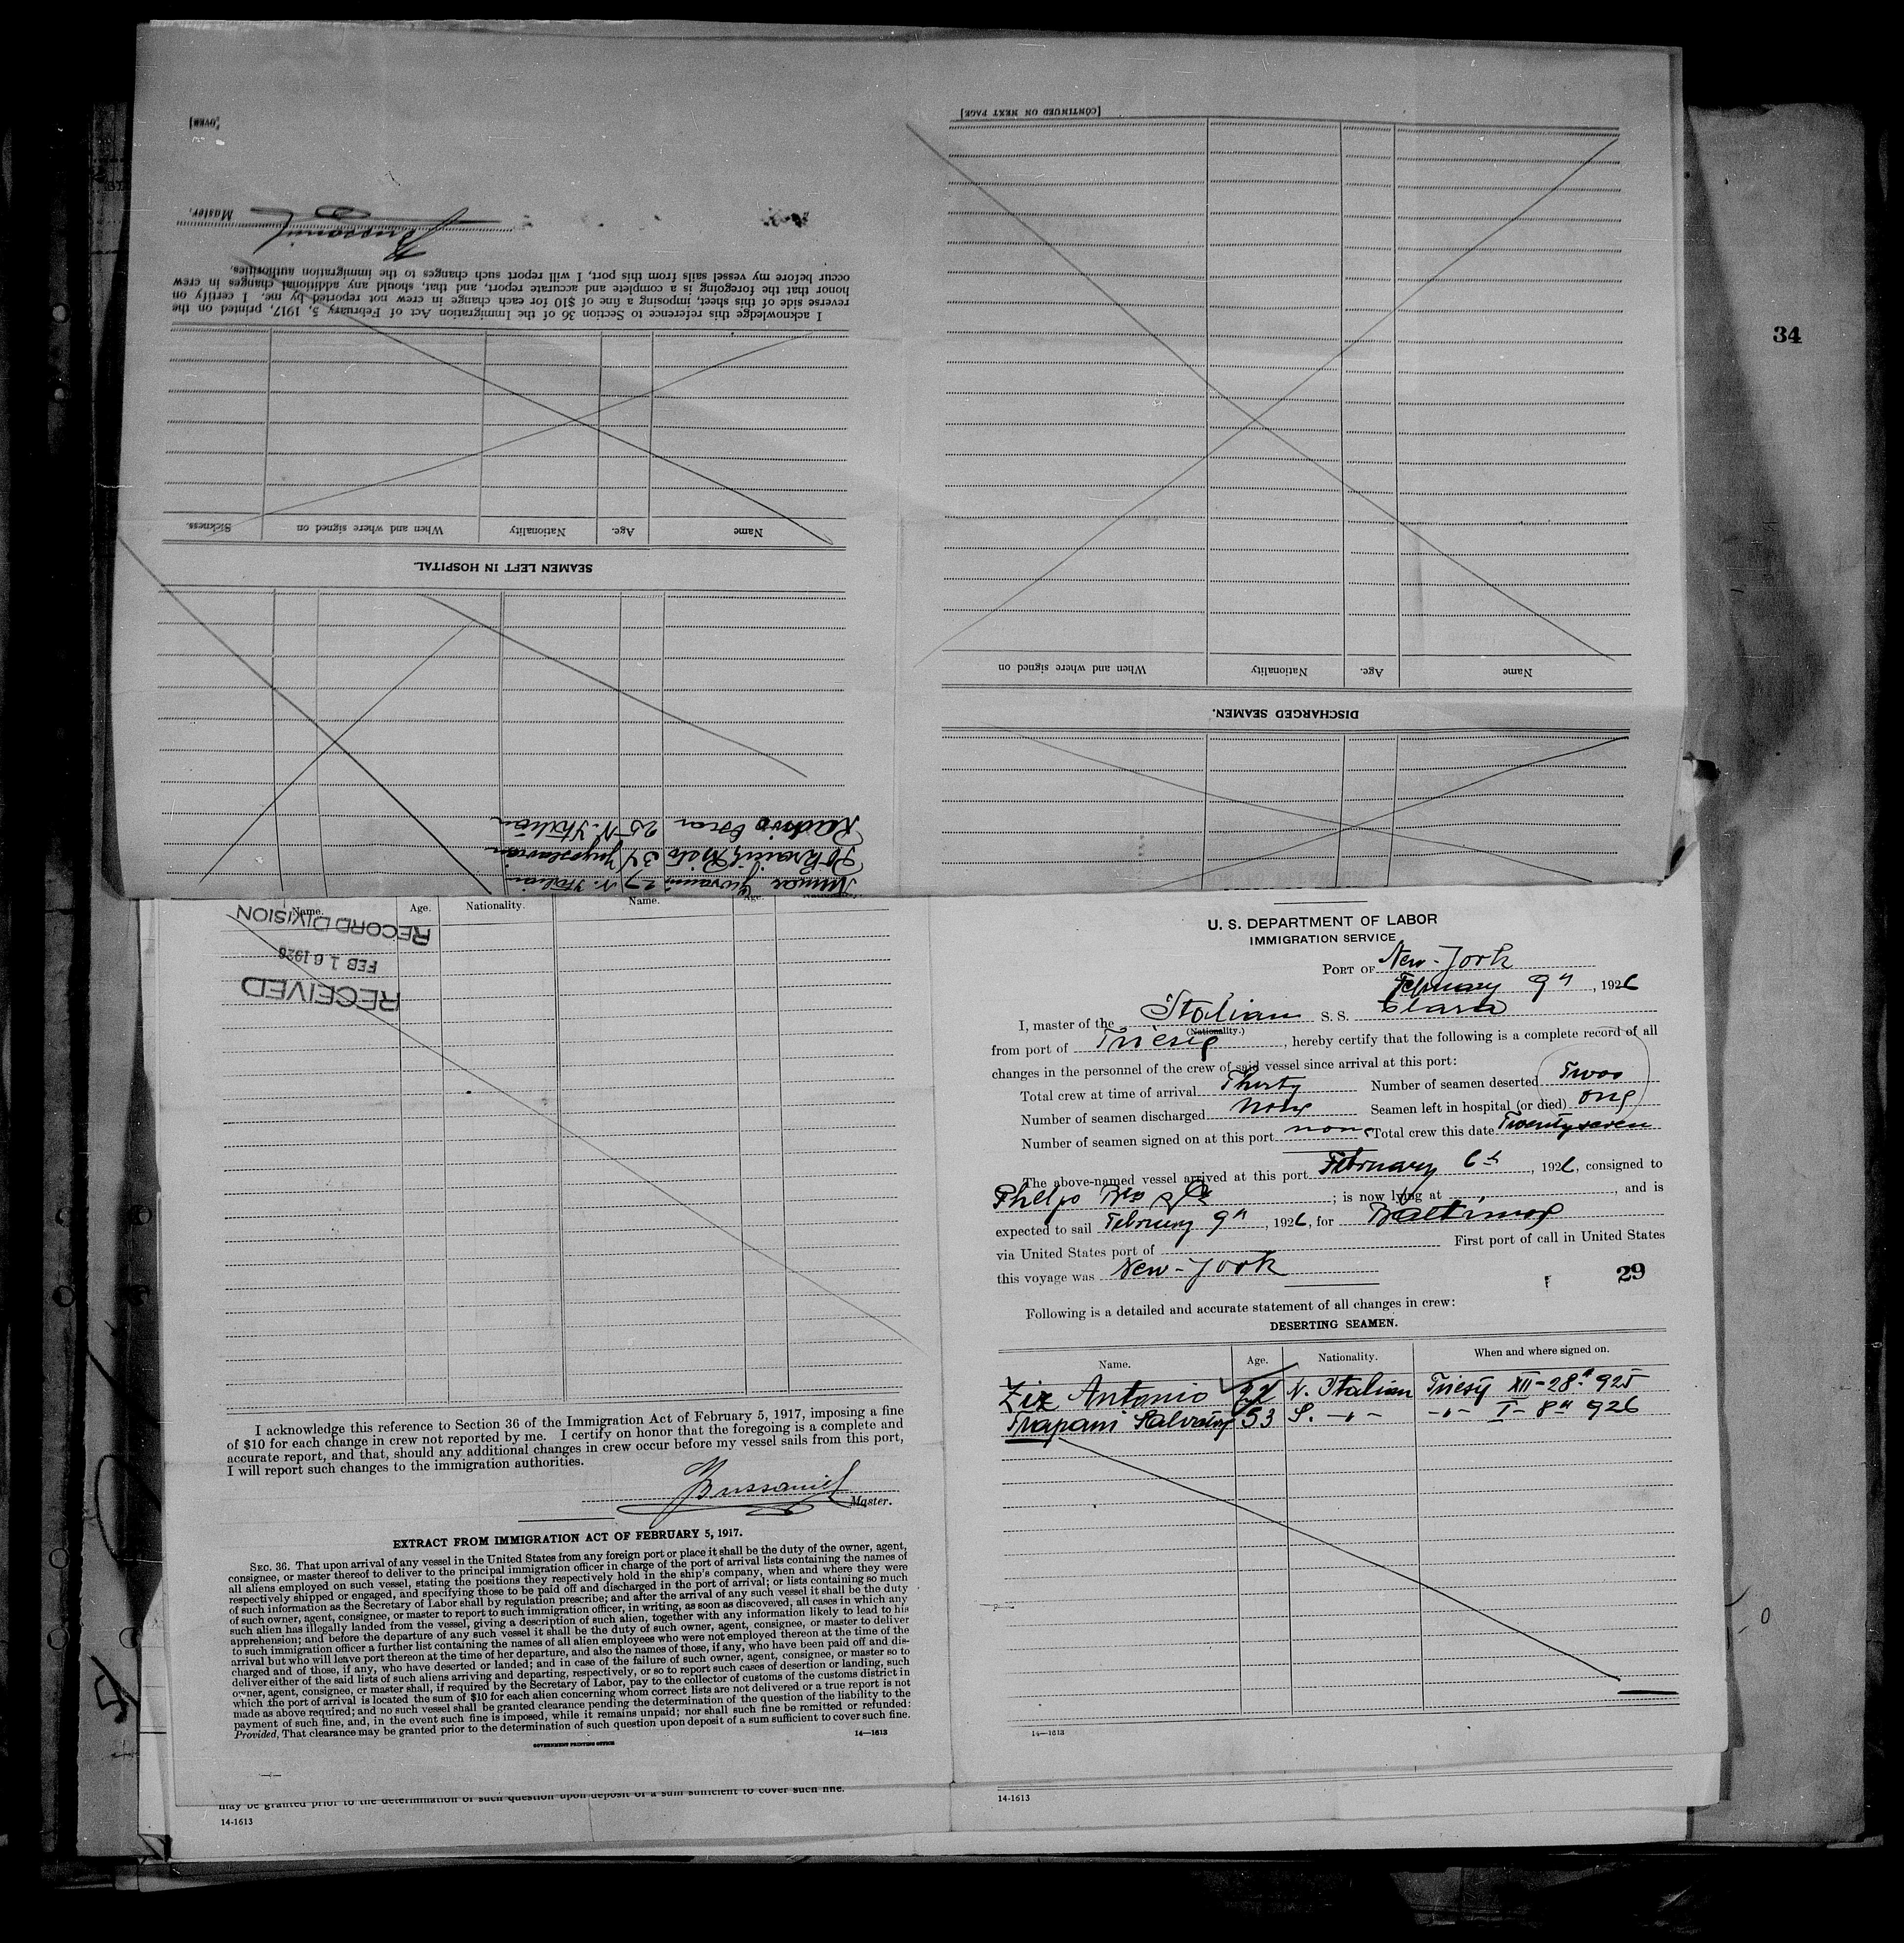 [OVER]
Master.
I acknowledge this reference to Section 36 of the Immigration Act of February 5, 1917, printed on the
reverse side of this sheet, imposing a fine of $10 for each change in crew not reported by me. I certify on
honor that the foregoing is a complete and accurate report, and that, should any additional changes in crew
occur before my vessel sails from this port, I will report such changes to the immigration authorities.
Name Age. Nationality When and where signed on Sickness.
SEAMEN LEFT IN HOSPITAL.
Oscar 25 N. Italian
34 Jugoslavian
Giovanni 27 N. Italian
[CONTINUED ON NEXT PAGE]
Name Age. Nationality When and where signed on
DISCHARGED SEAMEN.
34
Name. Age. Nationality. Name. Age.
RECORD DIVISION
FEB 16 1926
RECEIVED
I acknowledge this reference to Section 36 of the Immigration Act of February 5, 1917, imposing a fine
of $10 for each change in crew not reported by me. I certify on honor that the foregoing is a complete and
accurate report, and that, should any additional changes in crew occur before my vessel sails from this port,
I will report such changes to the immigration authorities.
Master.
EXTRACT FROM IMMIGRATION ACT OF FEBRUARY 5, 1917.
SEC. 36. That upon arrival of any vessel in the United States from any foreign port or place it shall be the duty of the owner, agent,
consignee, or master thereof to deliver to the principal immigration officer in charge of the port of arrival lists containing the names of
all aliens employed on such vessel, stating the positions they respectively hold in the ship's company, when and where they were
respectively shipped or engaged, and specifying those to be paid off and discharged in the port of arrival; or lists containing so much
of such information as the Secretary of Labor shall by regulation prescribe; and after the arrival of any such vessel it shall be the duty
of such owner, agent, consignee, or master to report to such immigration officer, in writing, as soon as discovered, all cases in which any
such alien has illegally landed from the vessel, giving a description of such alien, together with any information likely to lead to his
apprehension; and before the departure of any such vessel it shall be the duty of such owner, agent, consignee, or master to deliver
to such immigration officer a further list containing the names of all alien employees who were not employed thereon at the time of the
arrival but who will leave port thereon at the time of her departure, and also the names of those, if any, who have been paid off and dis-
charged and of those, if any, who have deserted or landed; and in case of the failure of such owner, agent, consignee, or master so to
deliver either of the said lists of such aliens arriving and departing, respectively, or so to report such cases of desertion or landing, such
owner, agent, consignee, or master shall, if required by the Secretary of Labor, pay to the collector of customs of the customs district in
which the port of arrival is located the sum of $10 for each alien concerning whom correct lists are not delivered or a true report is not
made as above required; and no such vessel shall be granted clearance pending the determination of the question of the liability to the
payment of such fine, and, in the event such fine is imposed, while it remains unpaid; nor shall such fine be remitted or refunded:
Provided, That clearance may be granted prior to the determination of such question upon deposit of a sum sufficient to cover such fine.
14—1613
GOVERNMENT PRINTING OFFICE
may be granted prior to the determination of such question upon deposit of a sum sufficient to cover such fine.
14-1613
U. S. DEPARTMENT OF LABOR
IMMIGRATION SERVICE
PORT OF New-York
February 9th, 1926
I, master of the Italian S. S. Clara
(Nationality.)
from port of Trieste, hereby certify that the following is a complete record of all
changes in the personnel of the crew of said vessel since arrival at this port:
Total crew at time of arrival Thirty Number of seamen deserted Twoo
Number of seamen discharged none Seamen left in hospital (or died) one
Number of seamen signed on at this port none Total crew this date Twenty seven
The above-named vessel arrived at this port February 6th, 1926, consigned to
Phelps Bros & Co; is now lying at , and is
expected to sail February 9th, 1926, for Baltimore
via United States port of First port of call in United States
this voyage was New-York
29
Following is a detailed and accurate statement of all changes in crew:
DESERTING SEAMEN.
Name. Age. Nationality. When and where signed on.
Ziz Antonio N. Italian Trieste XII-28th 925
Trapani Salvatore 53 S. -"- -"- I-8th 926
14—1613
14-1613